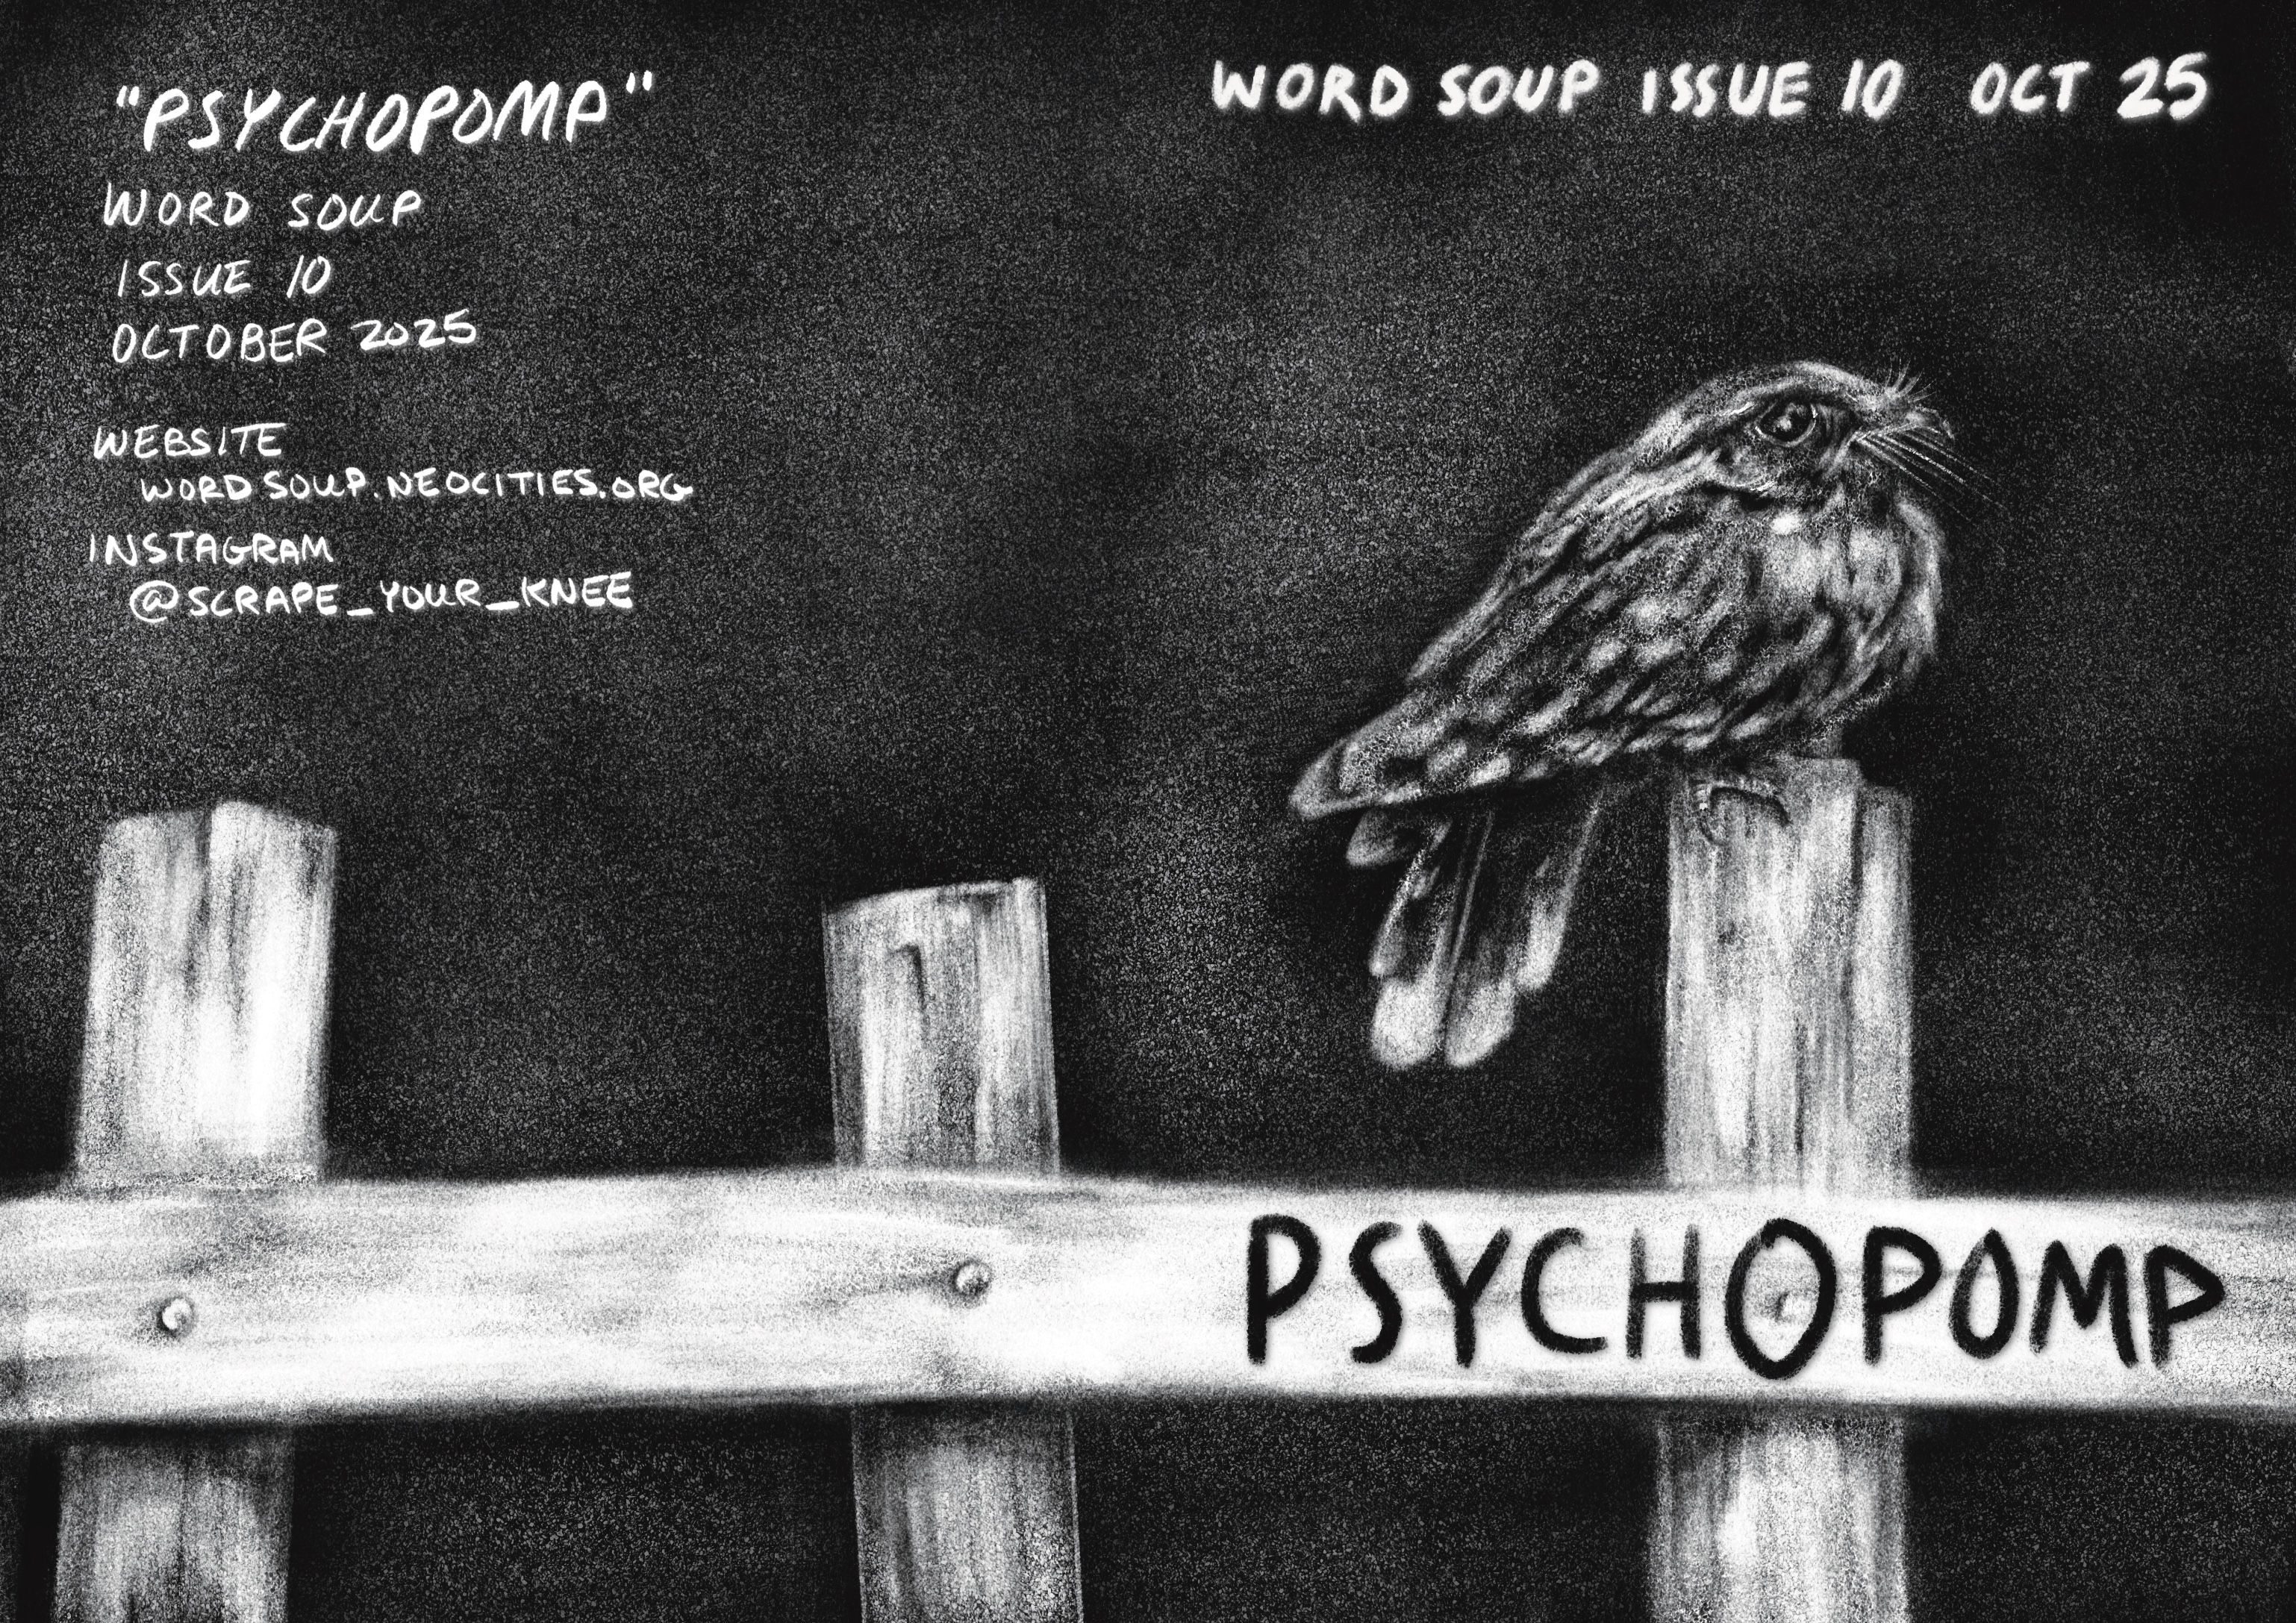 "PSYCHOPOMP"
WORD SOUP
ISSUE 10
OCTOBER 2025
WEBSITE
WORDSOUP.NEOCITIES.ORG
INSTAGRAM
@SCRAPE_YOUR_KNEE
WORD SOUP ISSUE 10 OCT 25
PSYCHOPOMP